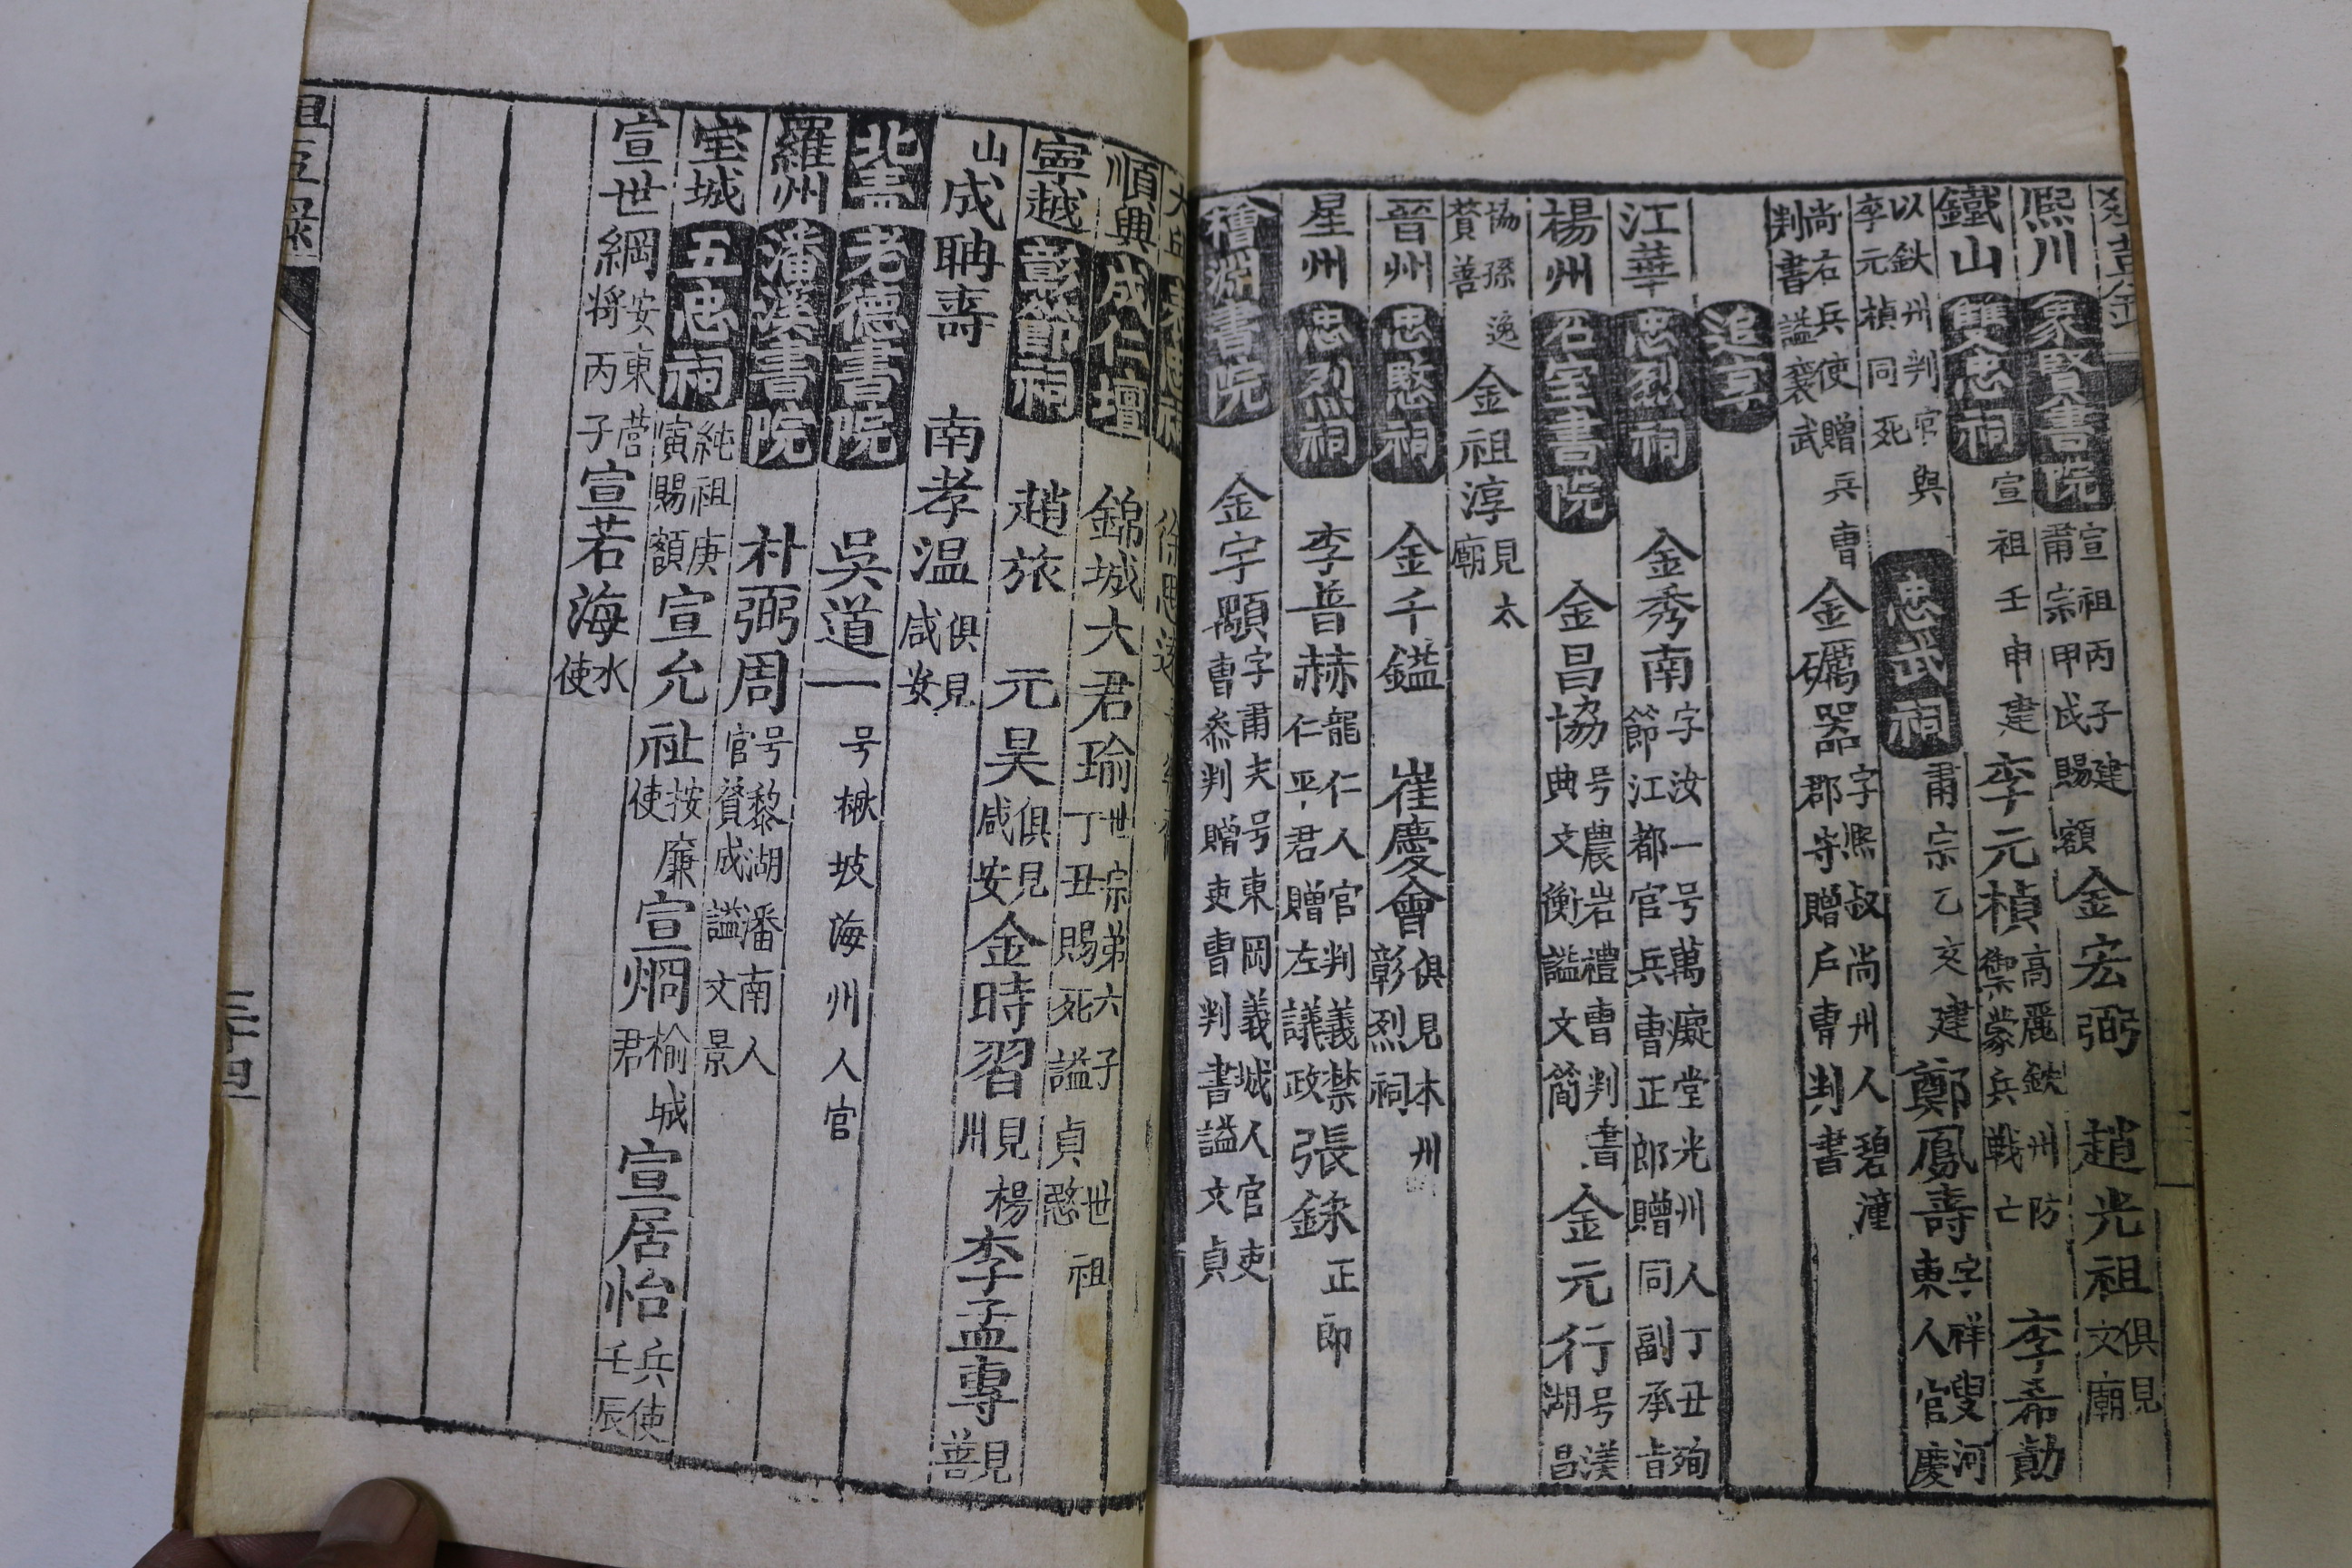 熙川 象賢書院 宣祖丙子建 肅宗甲戌賜額 金宏弼 趙光祖 俱見文廟
鐵山 雙忠祠 宣祖壬申建 李元楨 高麗鉄州防禦蒙兵戰亡 李希勣
以鉄州判官與李元楨同死 忠武祠 肅宗乙亥建 鄭鳳壽 字祥叟河東人官慶
尚右兵使贈兵曹判書謚襄武 金礪器 字熙叔尚州人碧潼郡守贈戶曹判書
追享
江華 忠烈祠 金秀南 字汝一号萬癡堂光州人丁丑殉節江都官兵曹正郎贈同副承旨
楊州 石室書院 金昌協 号農岩禮曹判書典文衡謚文簡 金元行 号渼湖昌
協孫逸贊善 金祖淳 見太廟
晉州 忠愍祠 金千鎰 崔慶會 俱見本州彰烈祠
星州 忠烈祠 李普赫 龍仁人官判義禁仁平君贈左議政 張錄 正郎
檜淵書院 金宇顒 字肅夫号東岡義城人官吏曹叅判贈吏曹判書謚文貞
順興 成仁壇 錦城大君瑜 世宗弟六子世祖丁丑賜死謚貞愍
寧越 彰節祠 趙旅 元昊 俱見咸安 金時習 見楊州 李孟專 見善
山 成聃壽 南孝温 俱見咸安
北靑 老德書院 吳道一 号楸坡海州人官
羅州 潘溪書院 朴弼周 号黎湖潘南人官贊成謚文景
宝城 五忠祠 純祖庚寅賜額 宣允祉 按廉使 宣烱 榆城君 宣居怡 兵使壬辰
宣世綱 安東營將丙子 宣若海 水使
三十四